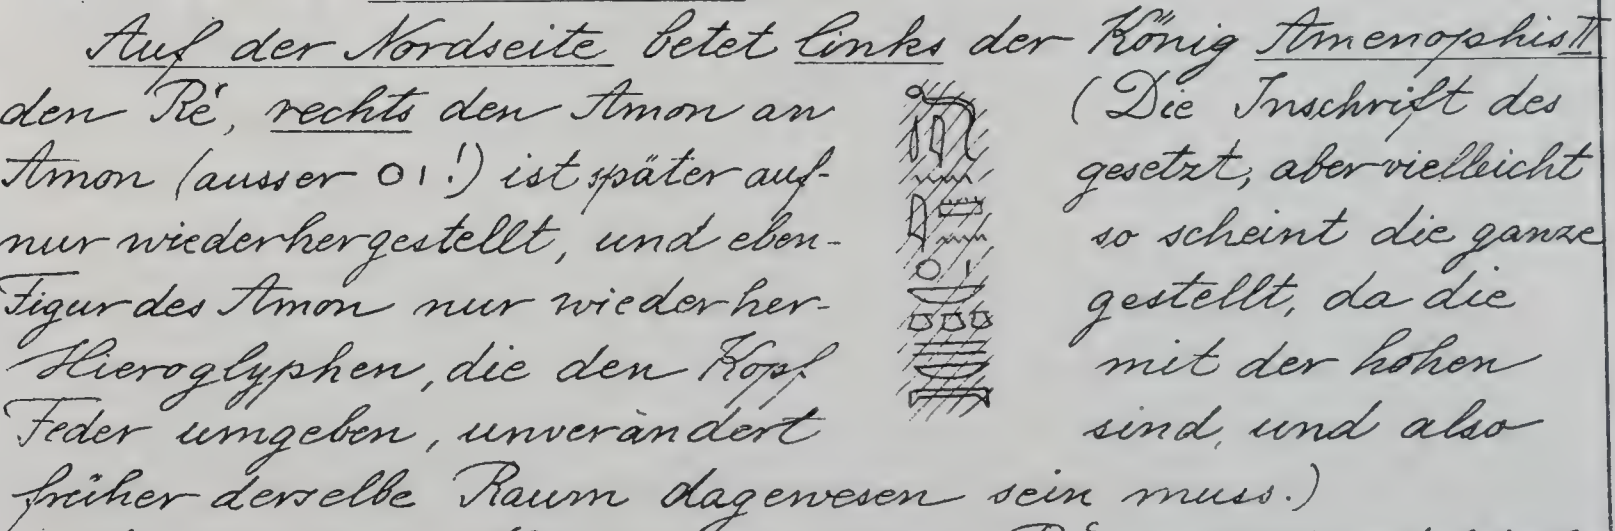 Auf der Nordseite betet links der König Amenophis II
den Rē, rechts den Amon an (Die Inschrift des
Amon (ausser O I !) ist später auf- gesetzt, aber vielleicht
nur wiederhergestellt, und eben- so scheint die ganze
Figur des Amon nur wiederher- gestellt, da die
Hieroglyphen, die den Kopf mit der hohen
Feder umgeben, unverändert sind, und also
früher derselbe Raum dagewesen sein muss.)